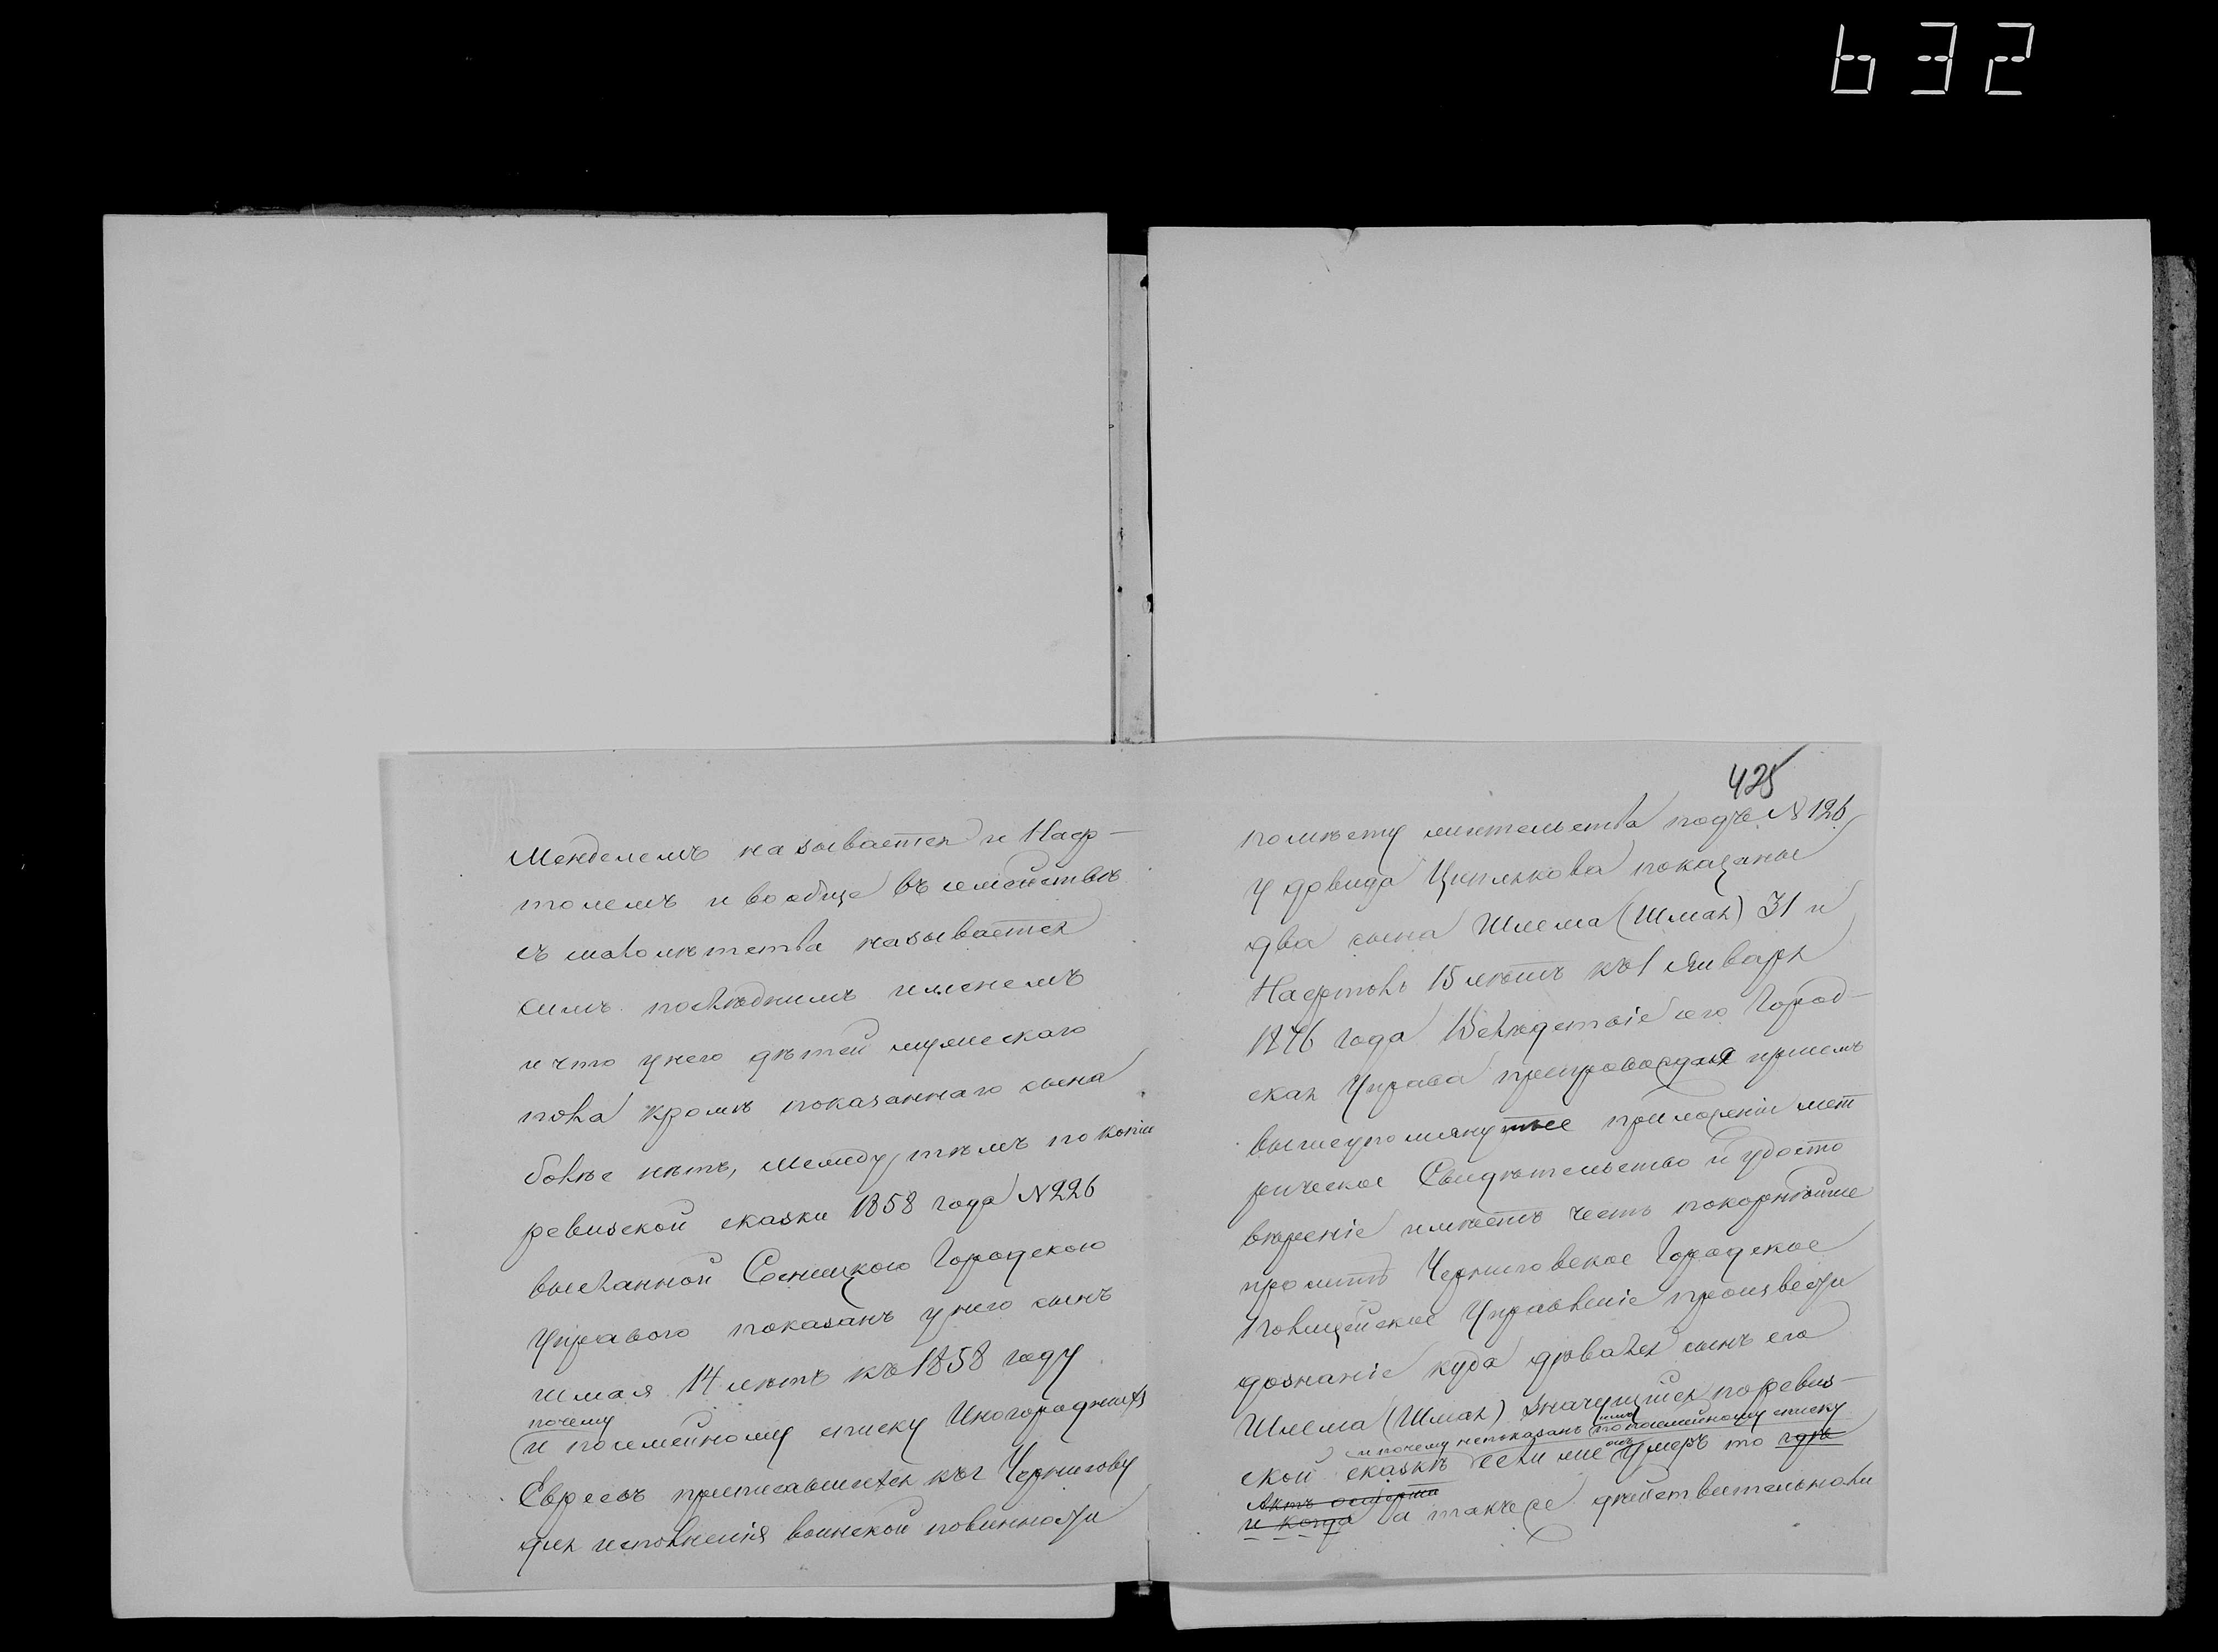 632
Менделемъ называется и Наф-
толемъ и вообще въ семействѣ
съ малолѣтства называется
симъ послѣднимъ именемъ
и что у него дѣтей мужескаго
пола кромѣ показаннаго сына
болѣе нѣтъ, между тѣмъ по копіи
ревизской сказки 1858 года №226
высланной Сосницкою Городскою
Управою показанъ у него сынъ
Шмая 14 лѣтъ къ 1858 году
почему
и посемейному списку Иногороднихъ
Евреевъ приписавшихся къ г Чернигову
для исполненія воинской повинности
425
по мѣсту жительства подъ №126
у Довида Цыпкова показаны
два сына Шлема (Шмая) 31 и
Нафтоль 15 лѣтъ къ 1 Января
1876 года Вслѣдствіе сего Город-
ская Управа препровождая при семъ
вышеупомянутые приложенія мет
рическое Свидѣтельство и удосто
вѣреніе имѣетъ честь покорнѣйше
просить Черниговское Городское
Полицейское Управленіе произвести
дознаніе куда дѣвался сынъ его
Шлема (Шмая) значущійся по ревиз-
и почему не показанъ по посемейному списку
ской сказкѣ если же умеръ то гдѣ
Актъ о смерти
и когда а также дѣйствительно ли